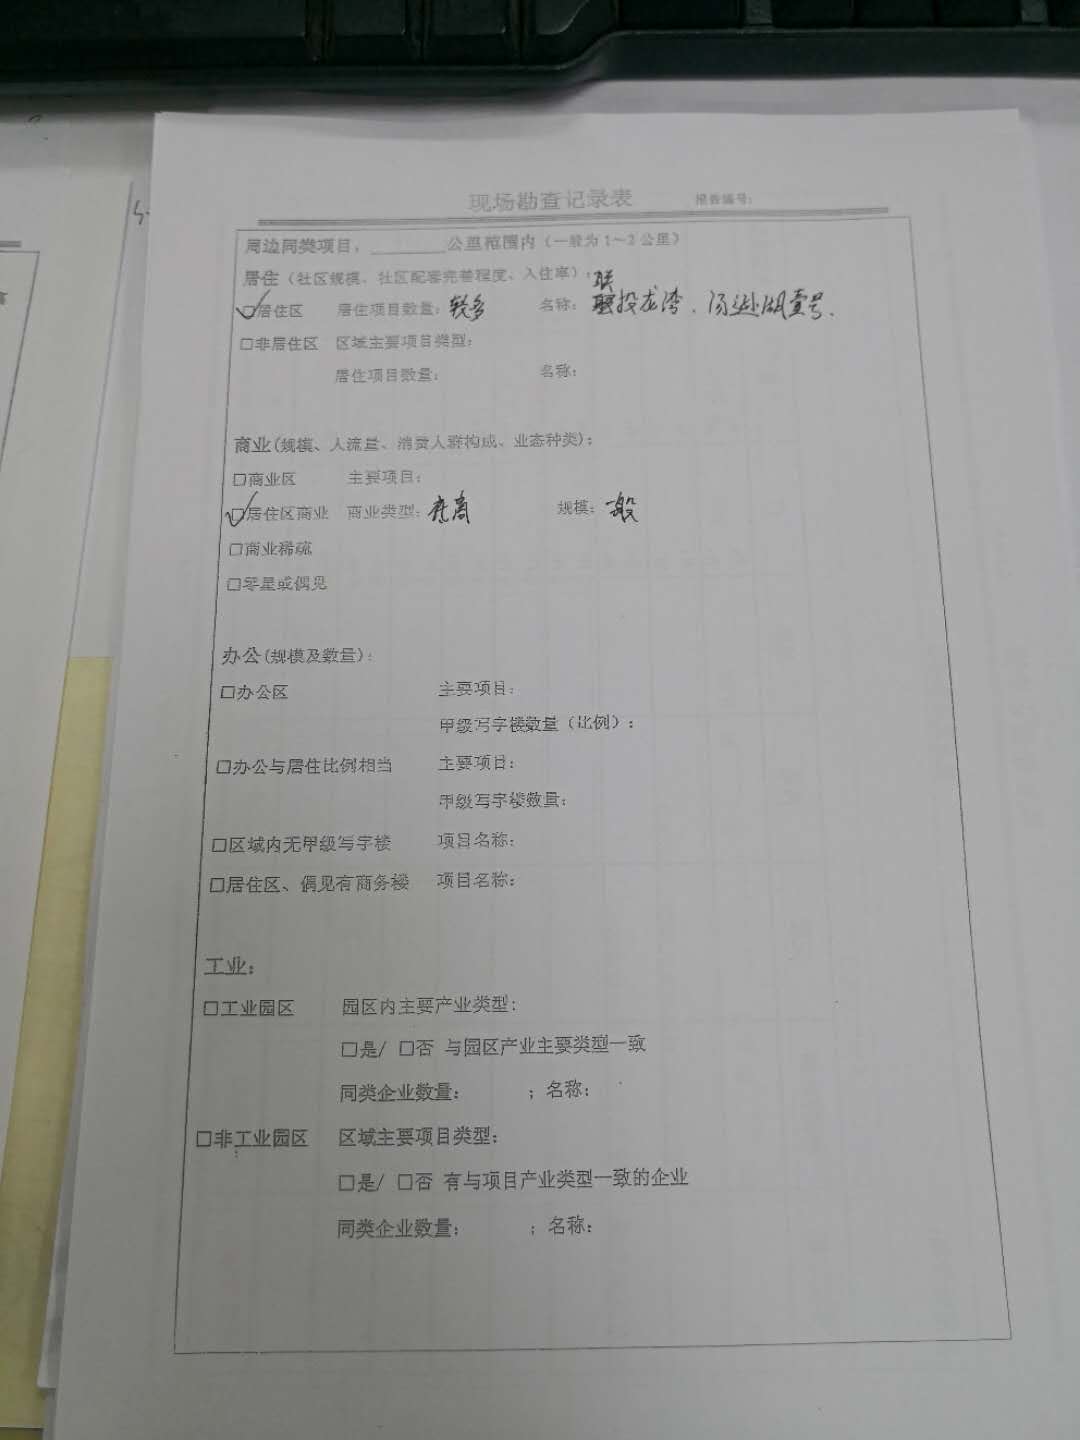 现场勘查记录表 报告编号:
周边同类项目，________公里范围内（一般为1～2公里）
居住（社区规模、社区配套完善程度、入住率）:
联
☑居住区 居住项目数量: 较多 名称: 联投龙湾、汤逊湖壹号、
□非居住区 区域主要项目类型:
居住项目数量: 名称:
商业(规模、人流量、消费人群构成、业态种类):
□商业区 主要项目:
☑居住区商业 商业类型: 底商 规模: 一般
□商业稀疏
□零星或偶见
办公(规模及数量):
□办公区 主要项目:
甲级写字楼数量（比例）:
□办公与居住比例相当 主要项目:
甲级写字楼数量:
□区域内无甲级写字楼 项目名称:
□居住区、偶见有商务楼 项目名称:
工业:
□工业园区 园区内主要产业类型:
□是/ □否 与园区产业主要类型一致
同类企业数量: ; 名称:
□非工业园区 区域主要项目类型:
□是/ □否 有与项目产业类型一致的企业
同类企业数量: ; 名称: